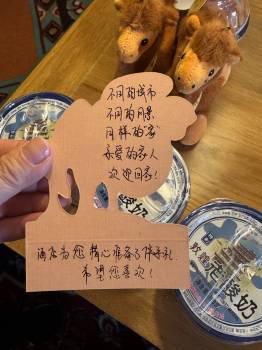 不同的城市
不同的风景
同样的“家”
亲爱的家人
欢迎回家！
酒店为您精心准备了伴手礼
希望您喜欢！
老酸奶
酸奶